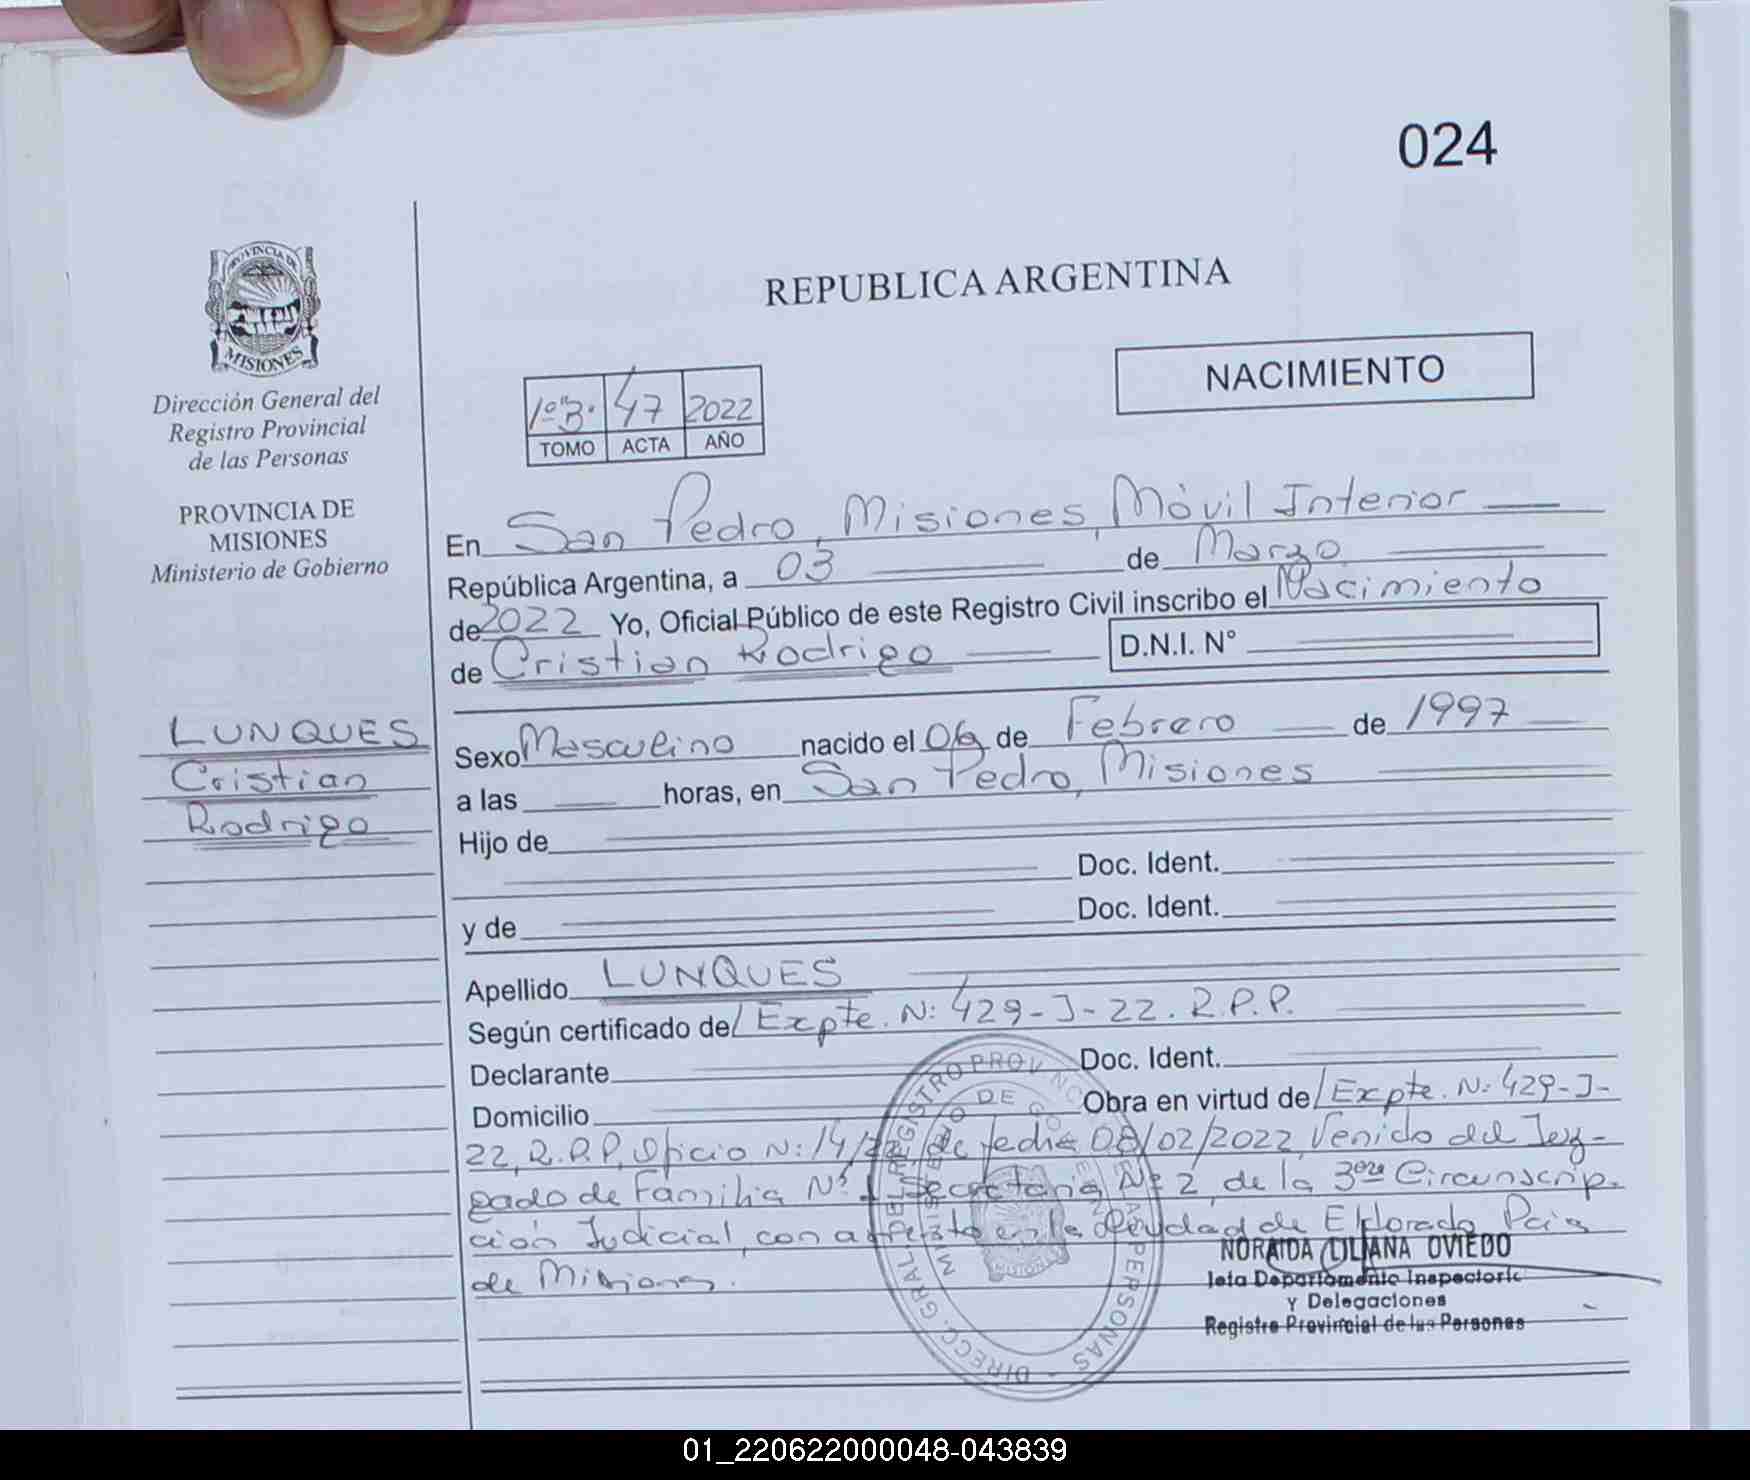 024
PROVINCIA DE
MISIONES
Dirección General del
Registro Provincial
de las Personas
PROVINCIA DE
MISIONES
Ministerio de Gobierno
LUNQUES
Cristian
Rodrigo
REPUBLICA ARGENTINA
NACIMIENTO
1º"B" 47 2022
TOMO ACTA AÑO
En San Pedro, Misiones, Móvil Interior
República Argentina, a 03 de Marzo
de 2022 Yo, Oficial Público de este Registro Civil inscribo el Nacimiento
de Cristian Rodrigo D.N.I. N°
Sexo Masculino nacido el 06 de Febrero de 1997
a las horas, en San Pedro, Misiones
Hijo de
Doc. Ident.
y de Doc. Ident.
Apellido LUNQUES
Según certificado de Expte. N: 429-J-22. R.P.P.
Declarante Doc. Ident.
Domicilio Obra en virtud de Expte. N: 429-J-
22, R.P.P, Oficio N: 14/22 de fecha 08/02/2022, Venido del Juz-
gado de Familia Nº 1 Secretaria Nº 2, de la 3era Circunscrip-
ción Judicial, con asiento en la Ciudad de Eldorado
de Misiones.
NORAIDA LILIANA OVIEDO
Jefa Departamento Inspectoria
y Delegaciones
Registro Provincial de las Personas
DIRECC. GRAL. DEL REGISTRO PROV PERSONAS
MINISTERIO DE GO
01_220622000048-043839